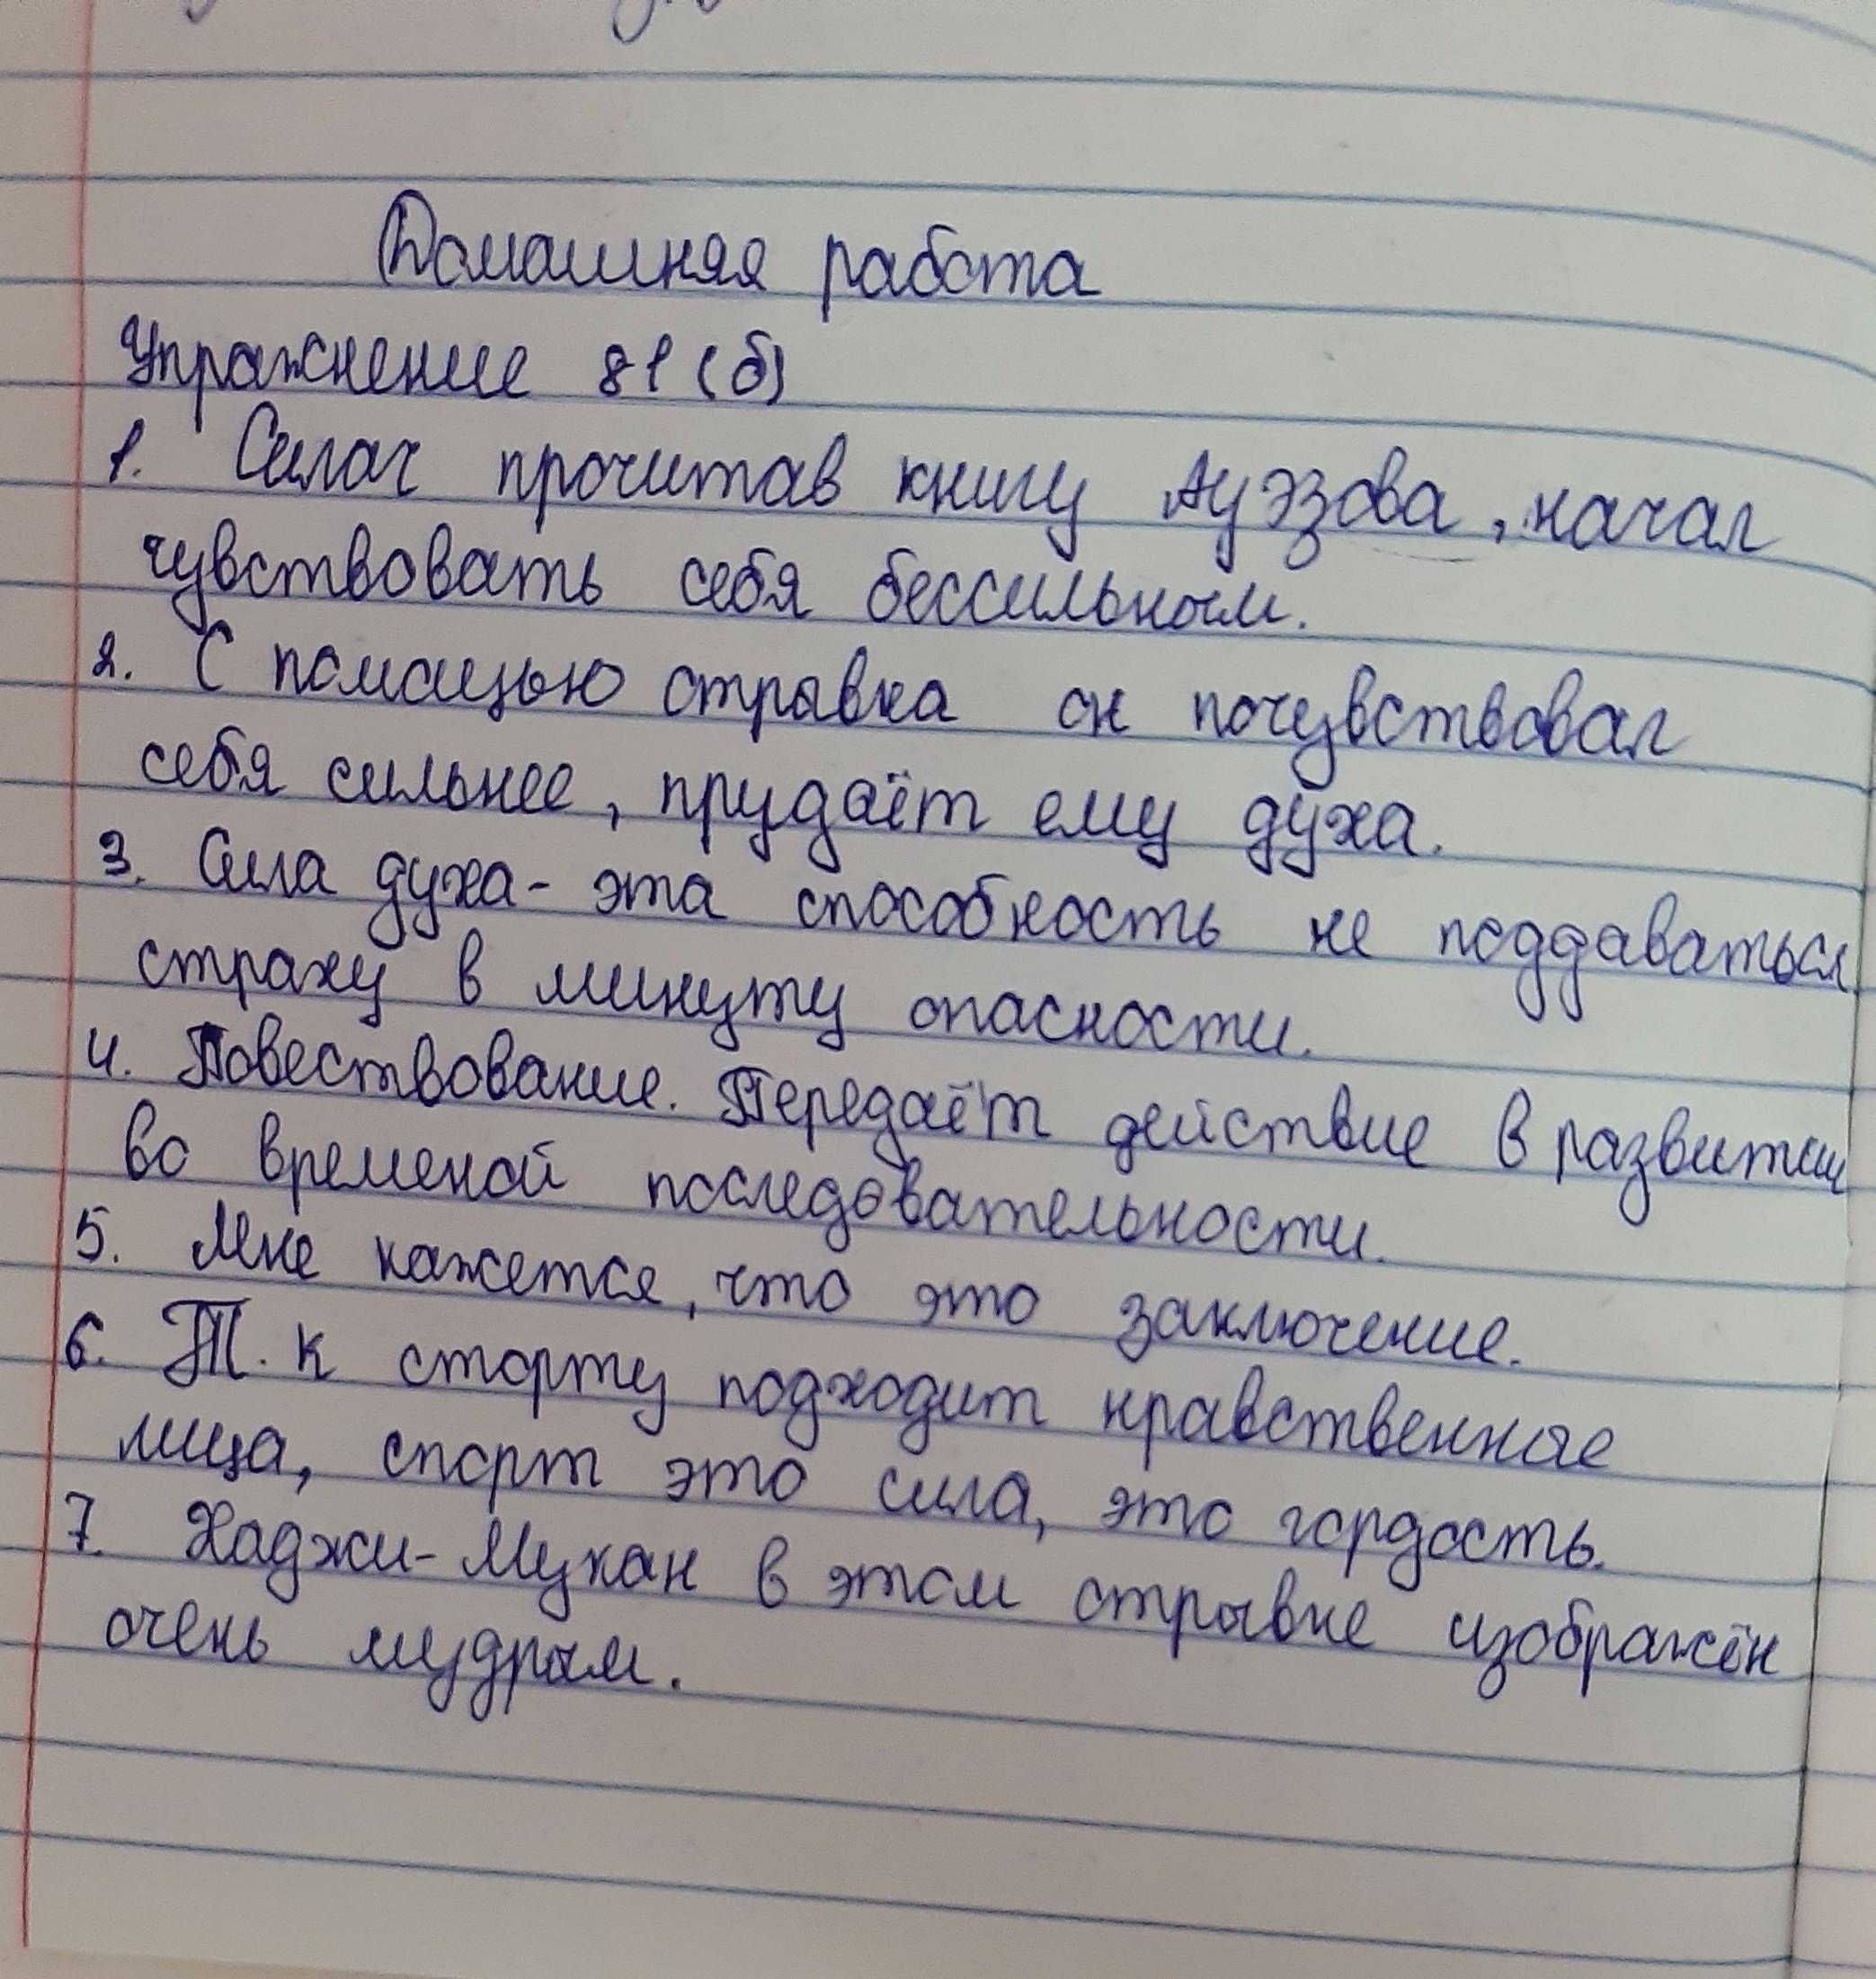 Домашняя работа
Упражнение 81 (б)
1. Силач прочитав книгу Ауэзова, начал
чувствовать себя бессильным.
2. С помощью отрывка он почувствовал
себя сильнее, прудаёт ему духа.
3. Сила духа- эта способность не поддаваться
страху в минуту опасности.
4. Повествование. Передаёт действие в развитии
во временой последовательности.
5. Мне кажется, что это заключение.
6. Т. к спорту подходит нравственные
лица, спорт это сила, это гордость.
7. Хаджи-Мукан в этом отрывке изображён
очень мудрым.